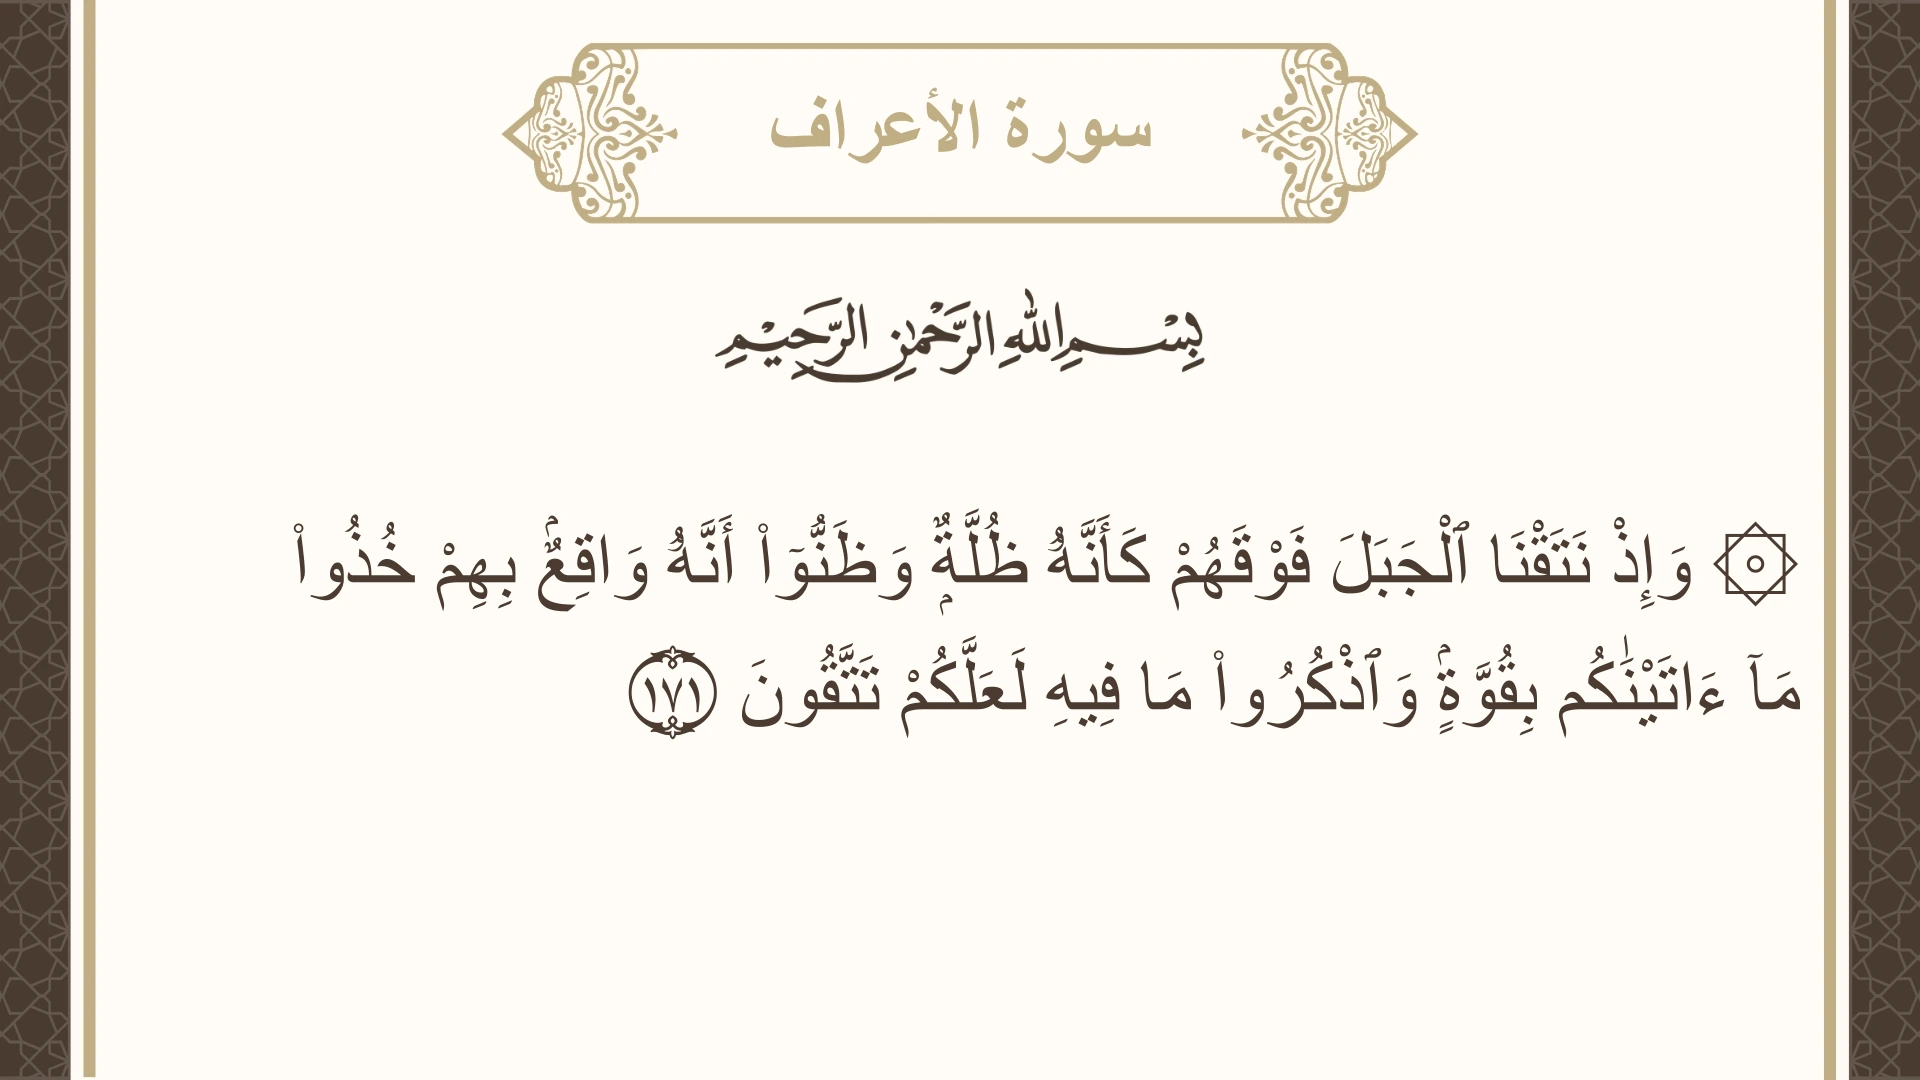 سورة الأعراف
بِسْمِ اللهِ الرَّحْمٰنِ الرَّحِيْمِ
۞ وَإِذْ نَتَقْنَا ٱلْجَبَلَ فَوْقَهُمْ كَأَنَّهُۥ ظُلَّةٌۭ وَظَنُّوٓا۟ أَنَّهُۥ وَاقِعٌۢ بِهِمْ خُذُوا۟
مَآ ءَاتَيْنَـٰكُم بِقُوَّةٍۢ وَٱذْكُرُوا۟ مَا فِيهِ لَعَلَّكُمْ تَتَّقُونَ ١٧١